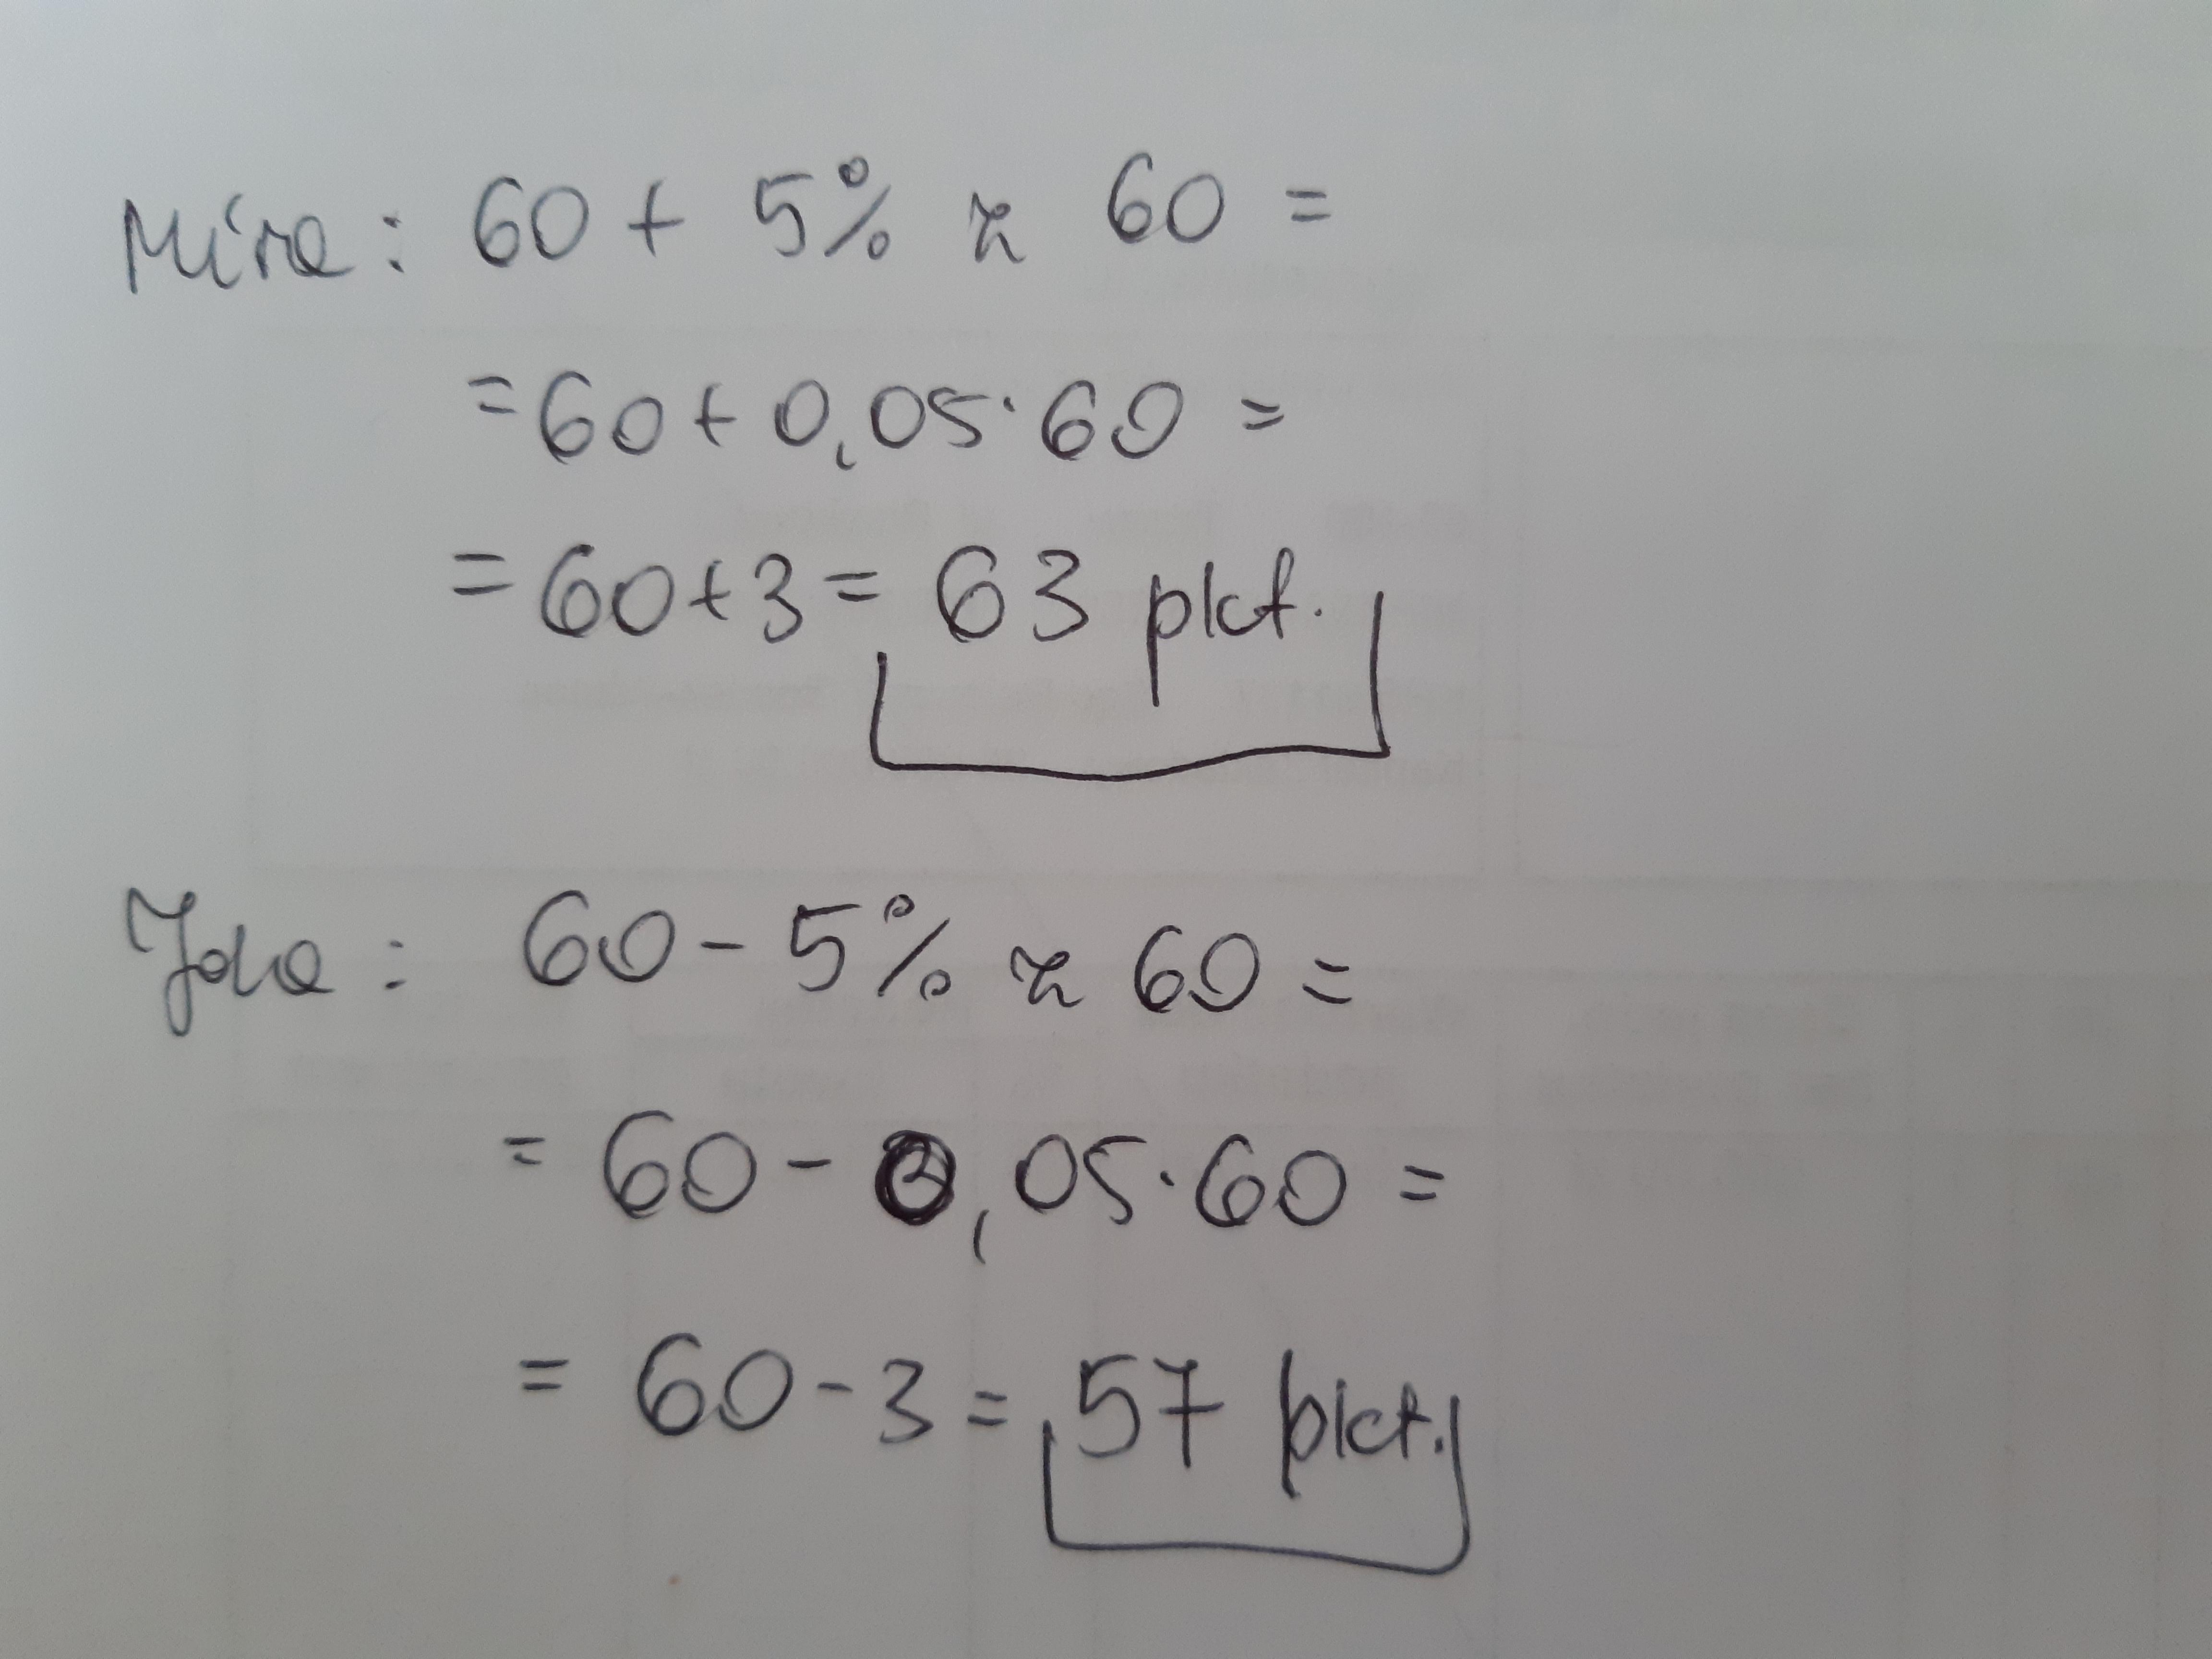 Mira: 60 + 5% z 60 =
= 60 + 0,05 · 60 =
= 60 + 3 = 63 pkt.
Jola: 60 - 5% z 60 =
= 60 - 0,05 · 60 =
= 60 - 3 = 57 pkt.